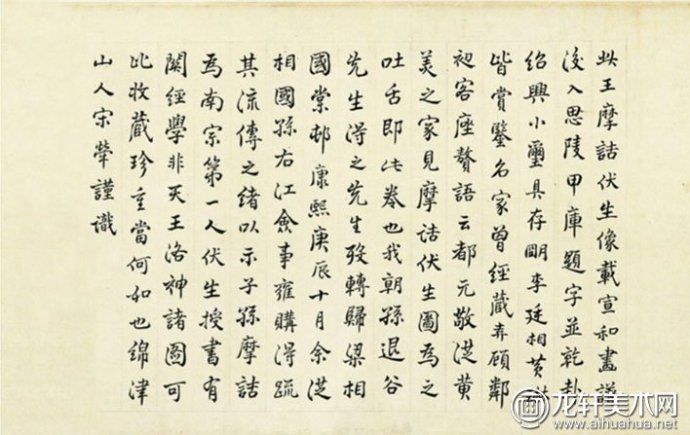 此王摩詰伏生像載宣和畫譜
後入思陵甲庫題字並乾卦
紹興小璽具存明李廷相黃
皆賞鑒名家曾經藏弆顧鄰
初客座贅語云都元敬從黃
美之家見摩詰伏生圖為之
吐舌即此卷也我朝孫退谷
先生得之先生歿轉歸梁相
國棠邨康熙庚辰十月余從
相國孫右江僉事雍購得疏
其流傳之緒以示子孫摩詰
為南宗第一人伏生授書有
關經學非天王洛神諸圖可
比收藏珍重當何如也綿津
山人宋犖謹識
龙轩美术网
www.aihuahua.net